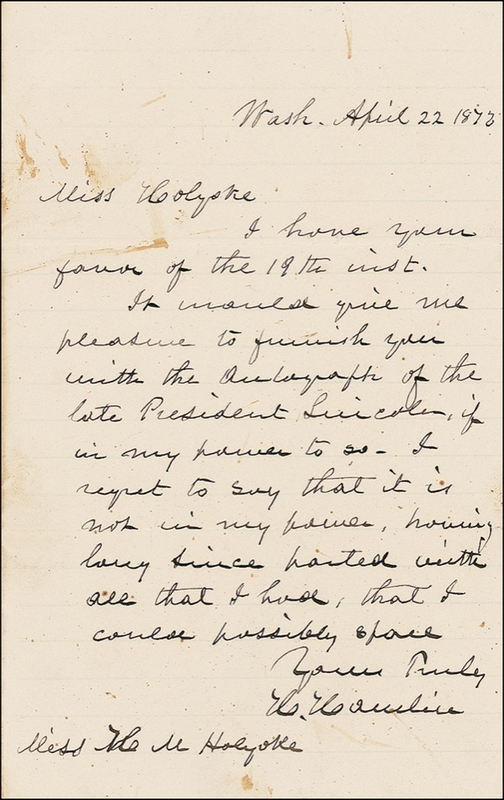 Wash. April 22 1872
Miss Holyoke
I have your
favor of the 19th inst.
It would give me
pleasure to furnish you
with the Autograph of the
late President Lincoln, if
in my power to so - I
regret to say that it is
not in my power, having
long since parted with
all that I had, that I
could possibly spare
Yours Truly
H. Hamlin
Miss H M Holyoke